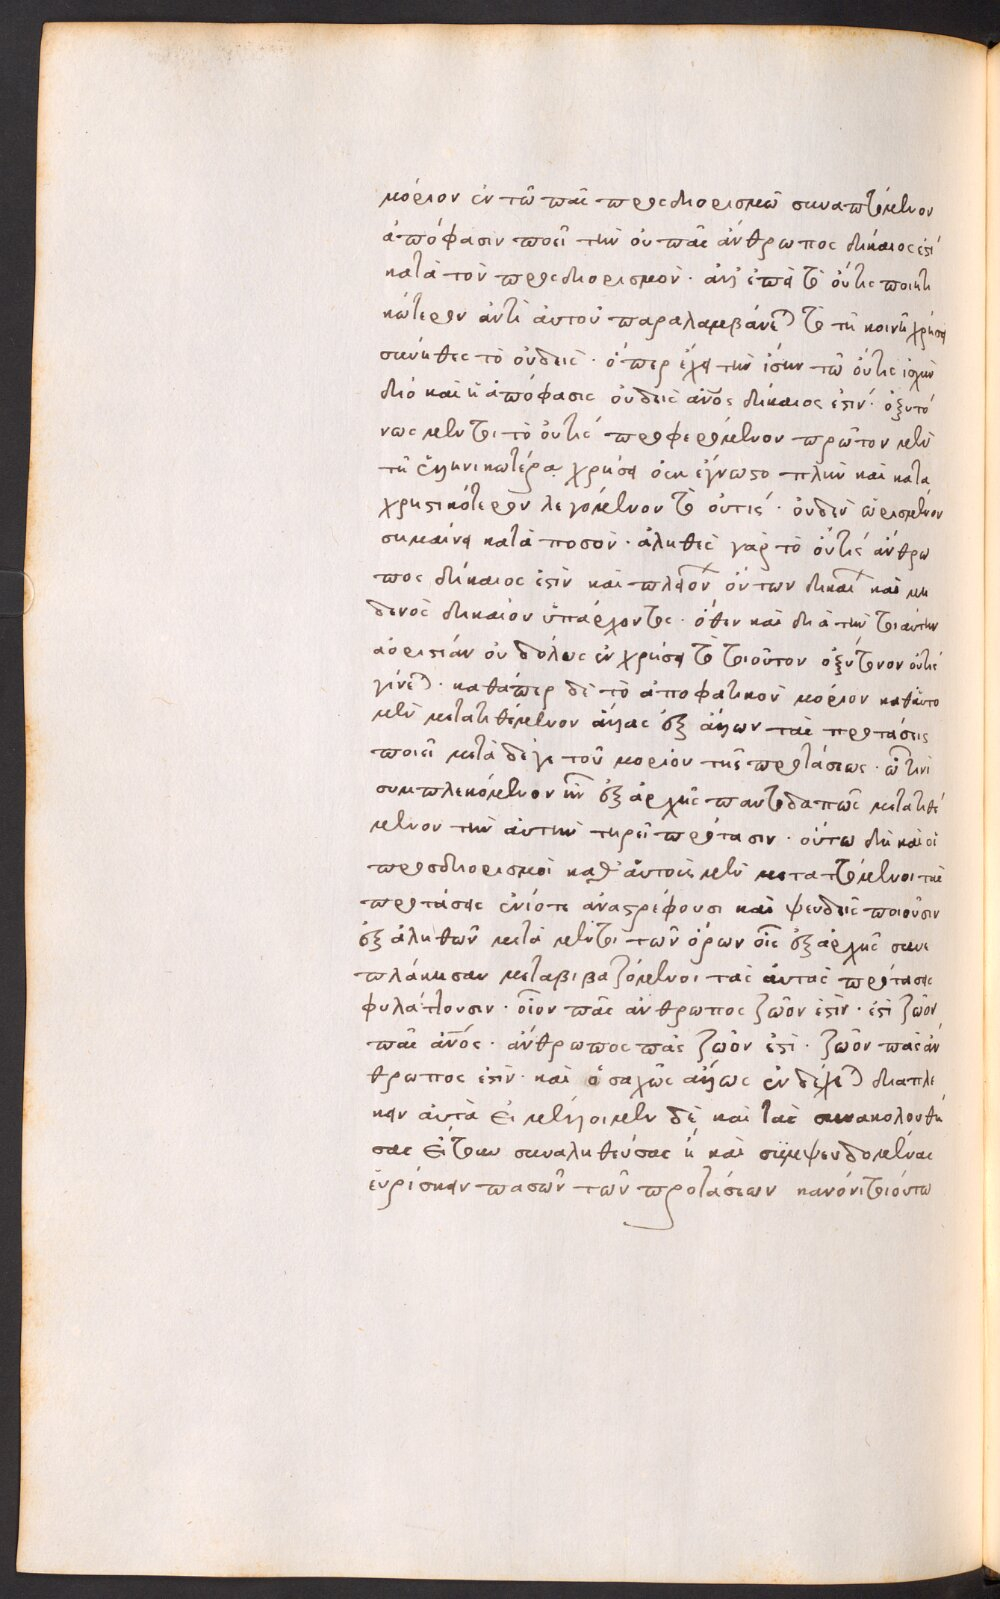 μόριον ἐν τῶ πᾶς προσδιορισμῶ συναπτόμενον
ἀπόφασιν ποιεῖ τὴν οὐ πᾶς ἄνθρωπος δίκαιος ἐστὶ
κατὰ τὸν προσδιορισμὸν · ἀλλ' ἐπεὶ τὸ οὔτις ποιητι
κώτερον ἀντὶ αὐτοῦ παραλαμβάνεται τὸ τῆ κοινῆ χρήσει
σύνηθες τὸ οὐδεὶς · ὅπερ ἔχει τὴν ἴσην τῶ οὔτις ἰσχὺν
διὸ καὶ ἡ ἀπόφασις οὐδεὶς ἄνος δίκαιος ἐστίν · ὀξυτό
νως μέντοι τὸ οὐτὶς προφερόμενον πρῶτον μὲν
τῆ ἑλληνικωτέρα χρήσει οὐκ ἔγνωστο πλὴν καὶ κατα
χρηστικότερον λεγόμενον τὸ οὐτὶς · οὐδὲν ὡρισμένον
σημαίνει κατὰ ποσὸν · ἀληθὲς γὰρ τὸ οὐτὶς ἄνθρω
πος δίκαιος ἐστὶν καὶ πλειόνων ὄντων δικαίων καὶ μη
δενὸς δικαίου ὑπάρχοντος · ὅθεν καὶ διὰ τὴν τοιαύτην
ἀοριστίαν οὐδ' ὅλως ἐν χρήσει τὸ τοιοῦτον ὀξύτονον οὐτὶς
γίνεται · καθάπερ δὲ τὸ ἀποφατικὸν μόριον καθ' αὑτὸ
μὲν μετατιθέμενον ἄλλας ἐξ ἄλλων τὰς προτάσεις
ποιεῖ μετὰ δέ γε τοῦ μορίου τῆς προτάσεως · ᾧτινι
συμπλεκόμενον ἦν ἐξ ἀρχῆς παντοδαπῶς μετατιθέ
μενον τὴν αὐτὴν τηρεῖ πρότασιν · οὕτω δὴ καὶ οἱ
προσδιορισμοὶ καθ' αὑτοὺς μὲν μετατιθέμενοι τὰς
προτάσεις ἐνίοτε ἀναστρέφουσι καὶ ψευδεῖς ποιοῦσιν
ἐξ ἀληθῶν μετὰ μέντοι τῶν ὅρων οἷς ἐξ ἀρχῆς συνε
πλάκησαν μεταβιβαζόμενοι τὰς αὐτὰς προτάσεις
φυλάττουσιν · οἷον πᾶς ἄνθρωπος ζῶον ἐστὶν · ἐστὶ ζῶον
πᾶς ἄνος · ἄνθρωπος πᾶς ζῶον ἐστὶ · ζῶον πᾶς ἄν
θρωπος ἐστὶν · καὶ ὁσαχῶς ἄλλως ἐνδέχεται διαπλέ
κειν αὐτὰ εἰ μέλλοιμεν δὲ καὶ τὰς συνακολουθού
σας εἴτουν συναληθευούσας ἢ καὶ συμψευδομένας
εὑρίσκειν πασῶν τῶν προτάσεων κανόνι τοιούτω